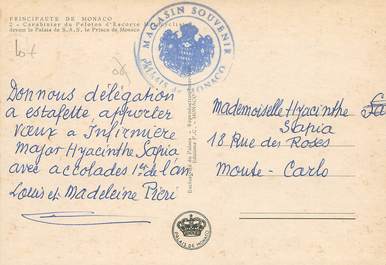 PRINCIPAUTE DE MONACO
2 - Carabinier du Peloton d'Escorte
devant le Palais de S.A.S. le Prince de Monaco
MAGASIN SOUVENIR
MONACO
Donnons délégation
a estafette apporter
vœux a Infirmière
major Hyacinthe Sapia
avec accolades 1er de l'an
Louis et Madeleine
Mademoiselle Hyacinthe
Sapia
18 Rue des Roses
Monte-Carlo
PALAIS DE MONACO